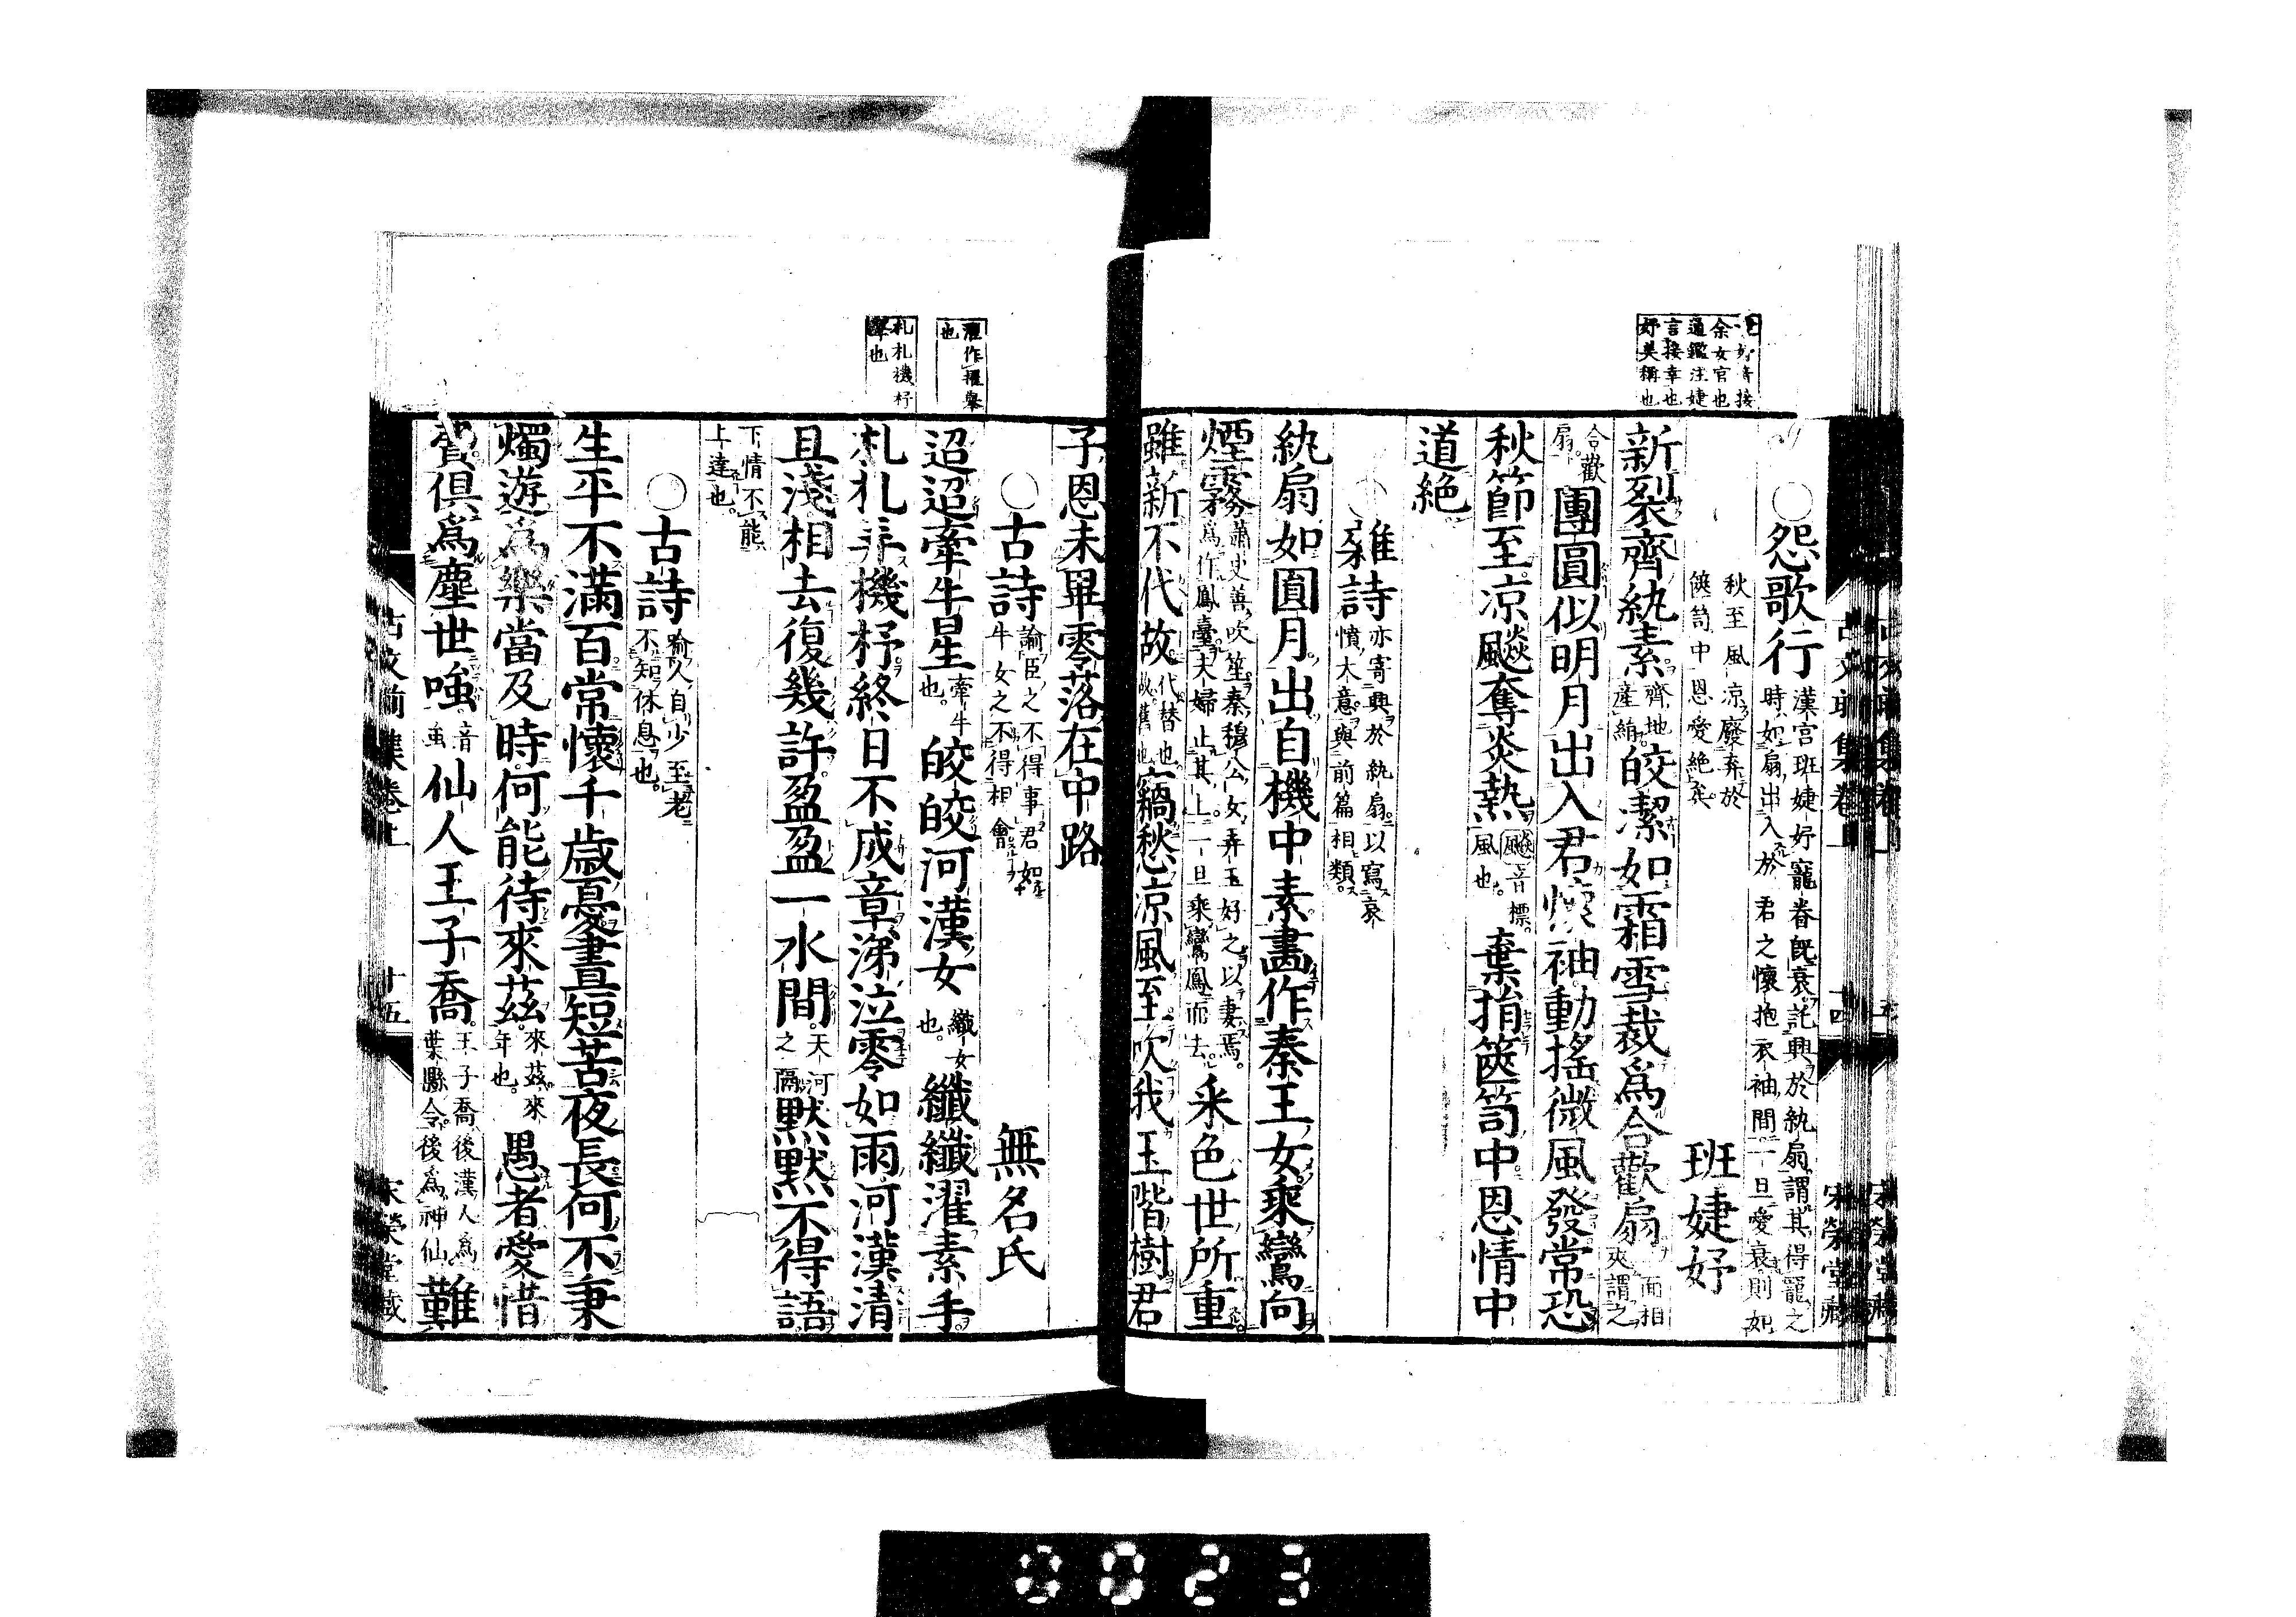 婕妤音接
余女官也
通鑑注婕
言接幸也
妤美稱也
○怨歌行漢宮班婕妤寵眷既衰託興於紈扇謂其得寵之
時如扇出入於君之懷抱衣袖間一旦愛衰則如
秋至風凉廢弃於
篋笥中恩愛絶矣
班婕妤
新裂齊紈素齊地產絹皎潔如霜雪裁爲合歡扇面相夾謂之
合歡扇團圓似明月出入君懷袖動搖微風發常恐
秋節至凉飈奪炎熱飈音標風也棄捐篋笥中恩情中
道絶
雜詩亦寄興於紈扇以寫哀憤大意與前篇相類
紈扇如圓月出自機中素畫作秦王女乘鸞向
煙霧蕭史善吹笙秦穆公女弄玉好之以妻焉爲作鳳臺夫婦止其上一旦乘鸞鳳而去采色世所重
雖新不代故代替也故舊也竊愁凉風至吹我玉階樹君
古文前集卷上
十四
宋榮堂藏
濯作擢舉
也
札札機杼
聲也
子恩未畢零落在中路
○古詩喻臣之不得事君如牛女之不得相會
無名氏
迢迢牽牛星牽牛也皎皎河漢女織女也纖纖濯素手
札札弄機杼終日不成章涕泣零如雨河漢清
且淺相去復幾許盈盈一水間天河之隔默默不得語
下情不能
上達也
○古詩喻人自少至老不知休息也
生平不滿百常懷千歲憂晝短苦夜長何不秉
燭遊爲樂當及時何能待來茲來茲來年也愚者愛惜
費俱爲塵世嗤音蚩仙人王子喬王子喬後漢人爲葉縣令後爲神仙難
古文前集卷上
十五
宋榮堂藏
0023